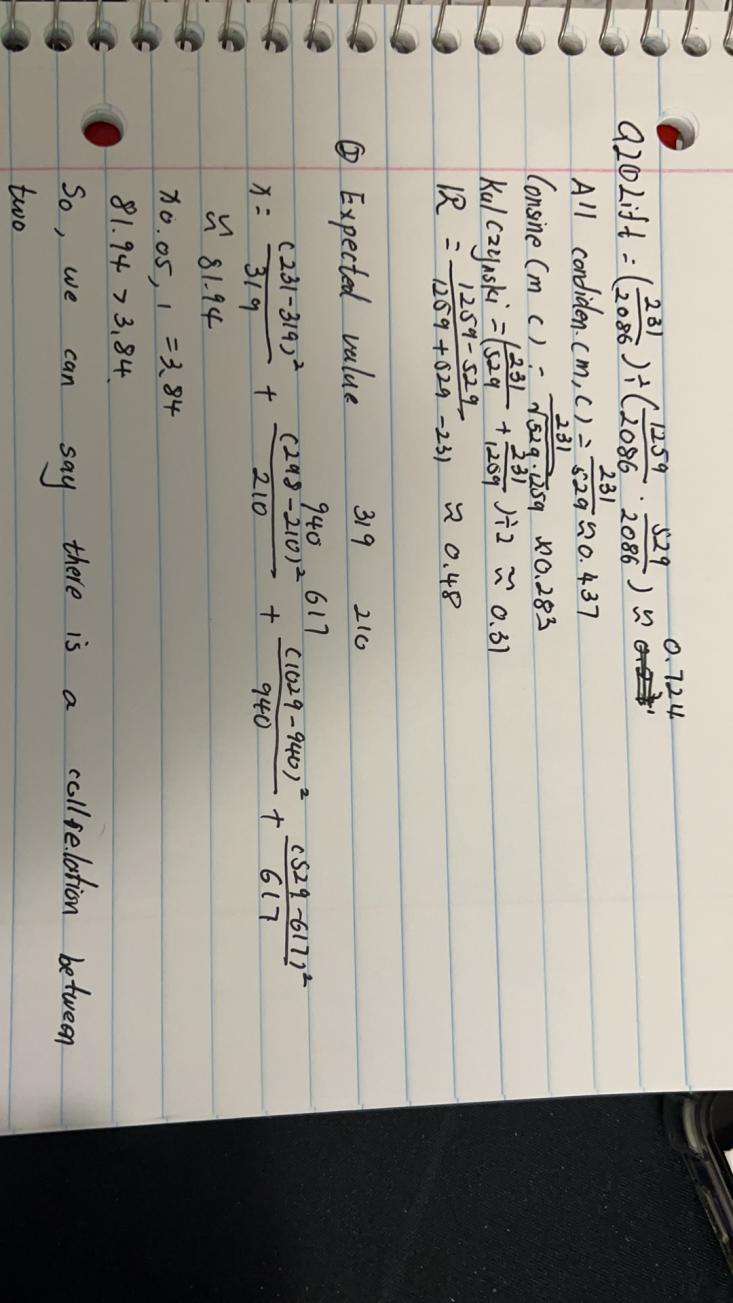 0.724
Q2① Lift = (231/2086) ÷ (1259/2086 · 529/2086) ≈
All condiden.(m,c) = 231/529 ≈ 0.437
Consine (m c) = 231/√529·1259 ≈ 0.283
Kulczynski = (231/529 + 231/1259) ÷ 2 ≈ 0.31
IR = 1259-529/1259+529-231 ≈ 0.48
② Expected value 319 210
940 617
x = (231-319)²/319 + (298-210)²/210 + (1029-940)²/940 + (529-617)²/617
≈ 81.94
x0.05, 1 = 3.84
81.94 > 3.84.
So, we can say there is a collrelation between
two